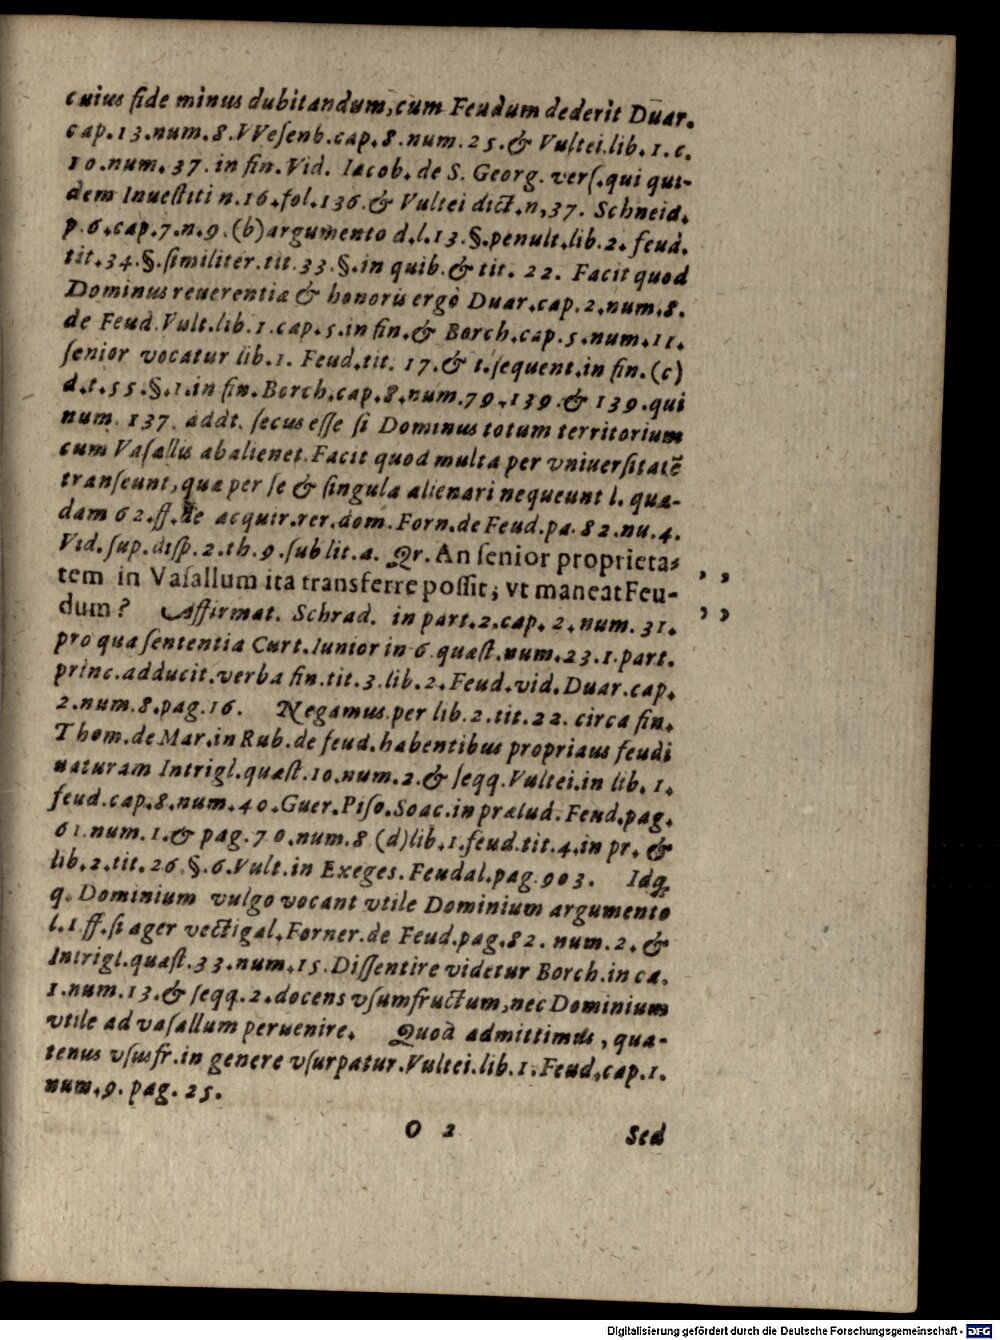 cuius fide minus dubitandum, cum Feudum dederit Duar.
cap. 13. num. 8. VVeſenb. cap. 8. num. 25. & Vultei. lib. 1. c.
10. num. 37. in fin. Vid. Iacob. de S. Georg. verſ. qui qui-
dem Inueſtiti n. 16. fol. 136. & Vultei dict. n, 37. Schneid.
p. 6. cap. 7. n. 9. (b) argumento d. l. 13. §. penult. lib. 2. feud.
tit. 34. §. ſimiliter. tit. 33. §. in quib. & tit. 22. Facit quod
Dominus reuerentiæ & honoris ergò Duar. cap. 2. num. 8.
de Feud. Vult. lib. 1. cap. 5. in fin. & Borch. cap. 5. num. 11.
ſenior vocatur lib. 1. Feud. tit. 17. & t. ſequent. in fin. (c)
d. t. 55. §. 1. in fin. Borch. cap. 8. num. 79. 139. & 139. qui
num. 137. addt. ſecus eſſe ſi Dominus totum territorium
cum Vaſallis abalienet. Facit quod multa per vniuerſitatē
tranſeunt, quæ per ſe & ſingula alienari nequeunt l. quæ-
dam 62. ff. de acquir. rer. dom. Forn. de Feud. pa. 82. nu. 4.
Vid. ſup. diſp. 2. th. 9. ſub lit. a. Qr. An ſenior proprieta- , ,
tem in Vaſallum ita transferre poſſit; vt maneat Feu-
dum? Affirmat. Schrad. in part. 2. cap. 2. num. 31. , ,
pro qua ſententia Curt. Iunior in 6. quæſt. num. 23. 1. part.
princ. adducit. verba fin. tit. 3. lib. 2. Feud. vid. Duar. cap.
2. num. 8. pag. 16. Negamus per lib. 2. tit. 22. circa fin.
Thom. de Mar. in Rub. de feud. habentibus propriam feudi
naturam Intrigl. quæſt. 10. num. 2. & ſeqq. Vultei. in lib. 1.
feud. cap. 8. num. 40. Guer. Piſo. Soac. in prælud. Feud. pag.
61. num. 1. & pag. 70. num. 8 (d) lib. 1. feud. tit. 4. in pr. &
lib. 2. tit. 26. §. 6. Vult. in Exeges. Feudal. pag. 903. Idq́;
q. Dominium vulgo vocant vtile Dominium argumento
l. 1. ff. ſi ager vectigal. Forner. de Feud. pag. 82. num. 2. &
Intrigl. quæſt. 33. num. 15. Diſſentire videtur Borch. in ca.
1. num. 13. & ſeqq. 2. docens vſumfructum, nec Dominium
vtile ad vaſallum peruenire. Quod admittimus, qua-
tenus vſusfr. in genere vſurpatur. Vultei. lib. 1. Feud. cap. 1.
num. 9. pag. 25.
O 2 Sed
Digitalisierung gefördert durch die Deutsche Forschungsgemeinschaft - DFG